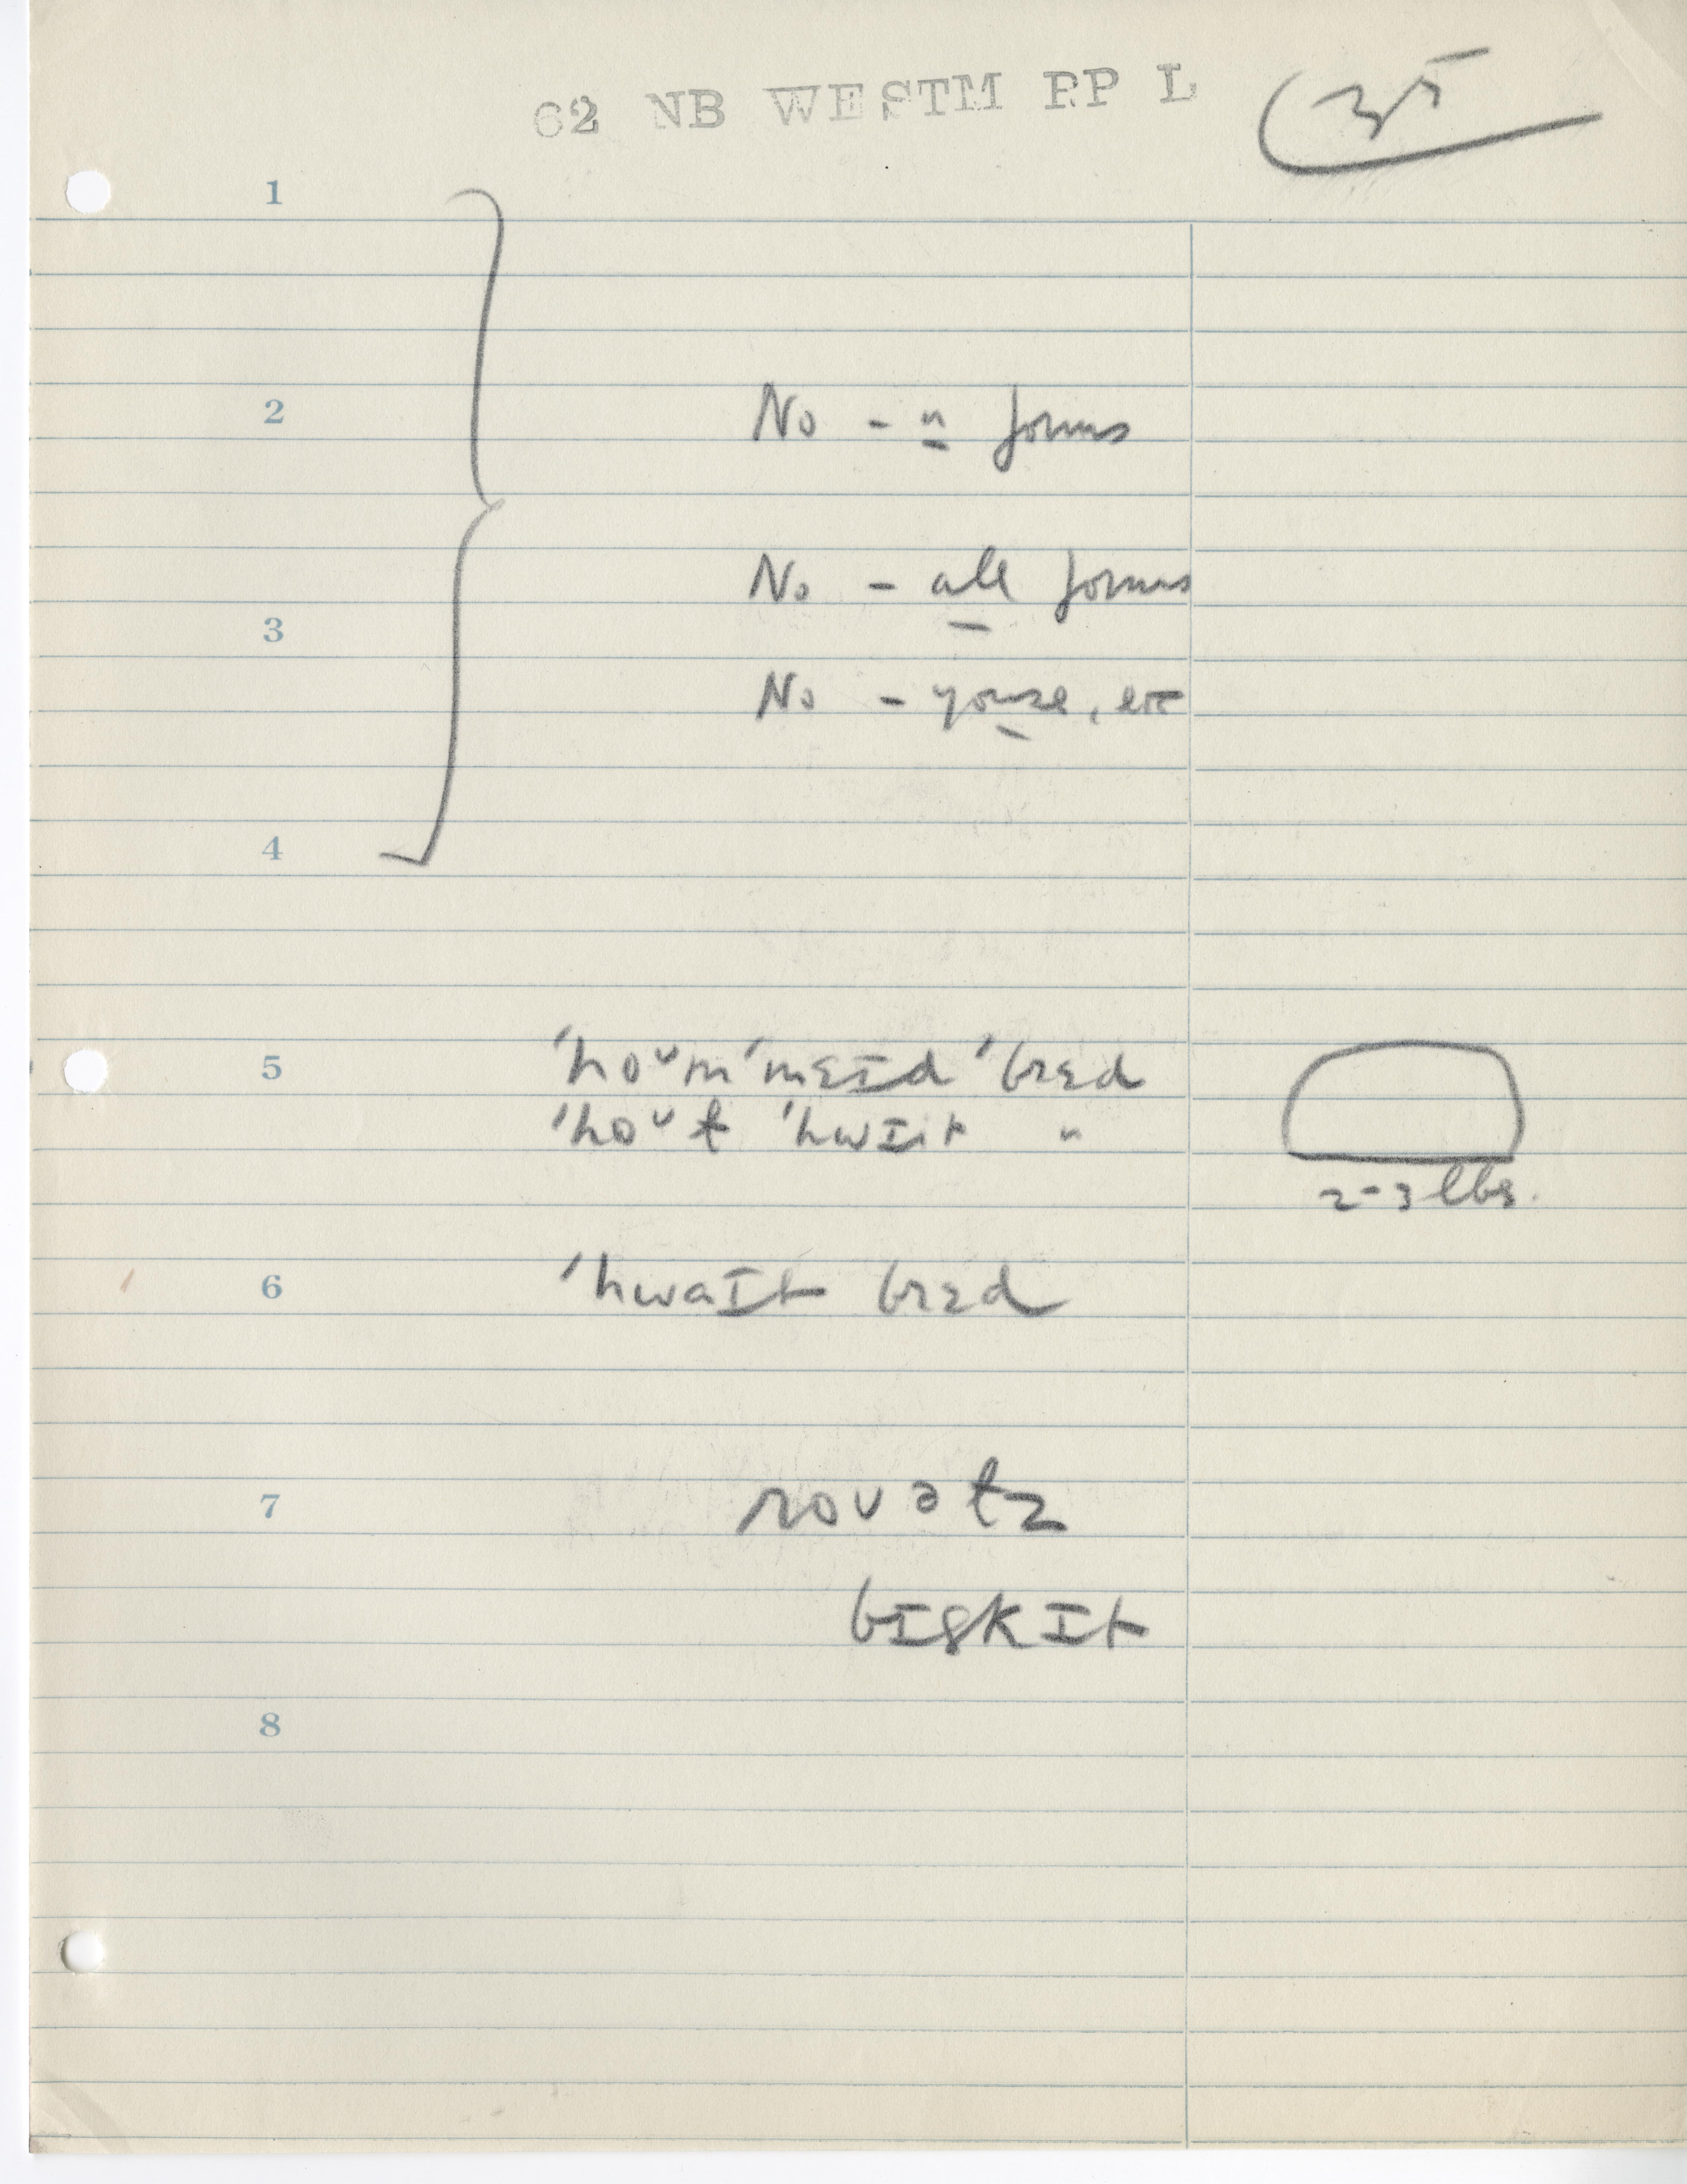 62 NB WESTM PP L
35
1
2 No - n forms
No - all forms
3
No - youse, etc
4
5 'hoʊm 'mɛɪd 'brɛd
'hoʊt 'hwiit "
2-3 lbs.
6 'hwaɪt brɛd
7
bɪskɪt
8